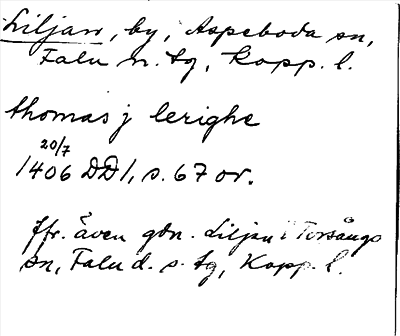 Liljan, by, Aspeboda sn,
Falu n. tg, Kopp. l.
thomas j lerighe
20/7
1406 DD1, s. 67 or.
Jfr. även gdn. Liljan i Torsångs
sn, Falu d. s. tg, Kopp. l.